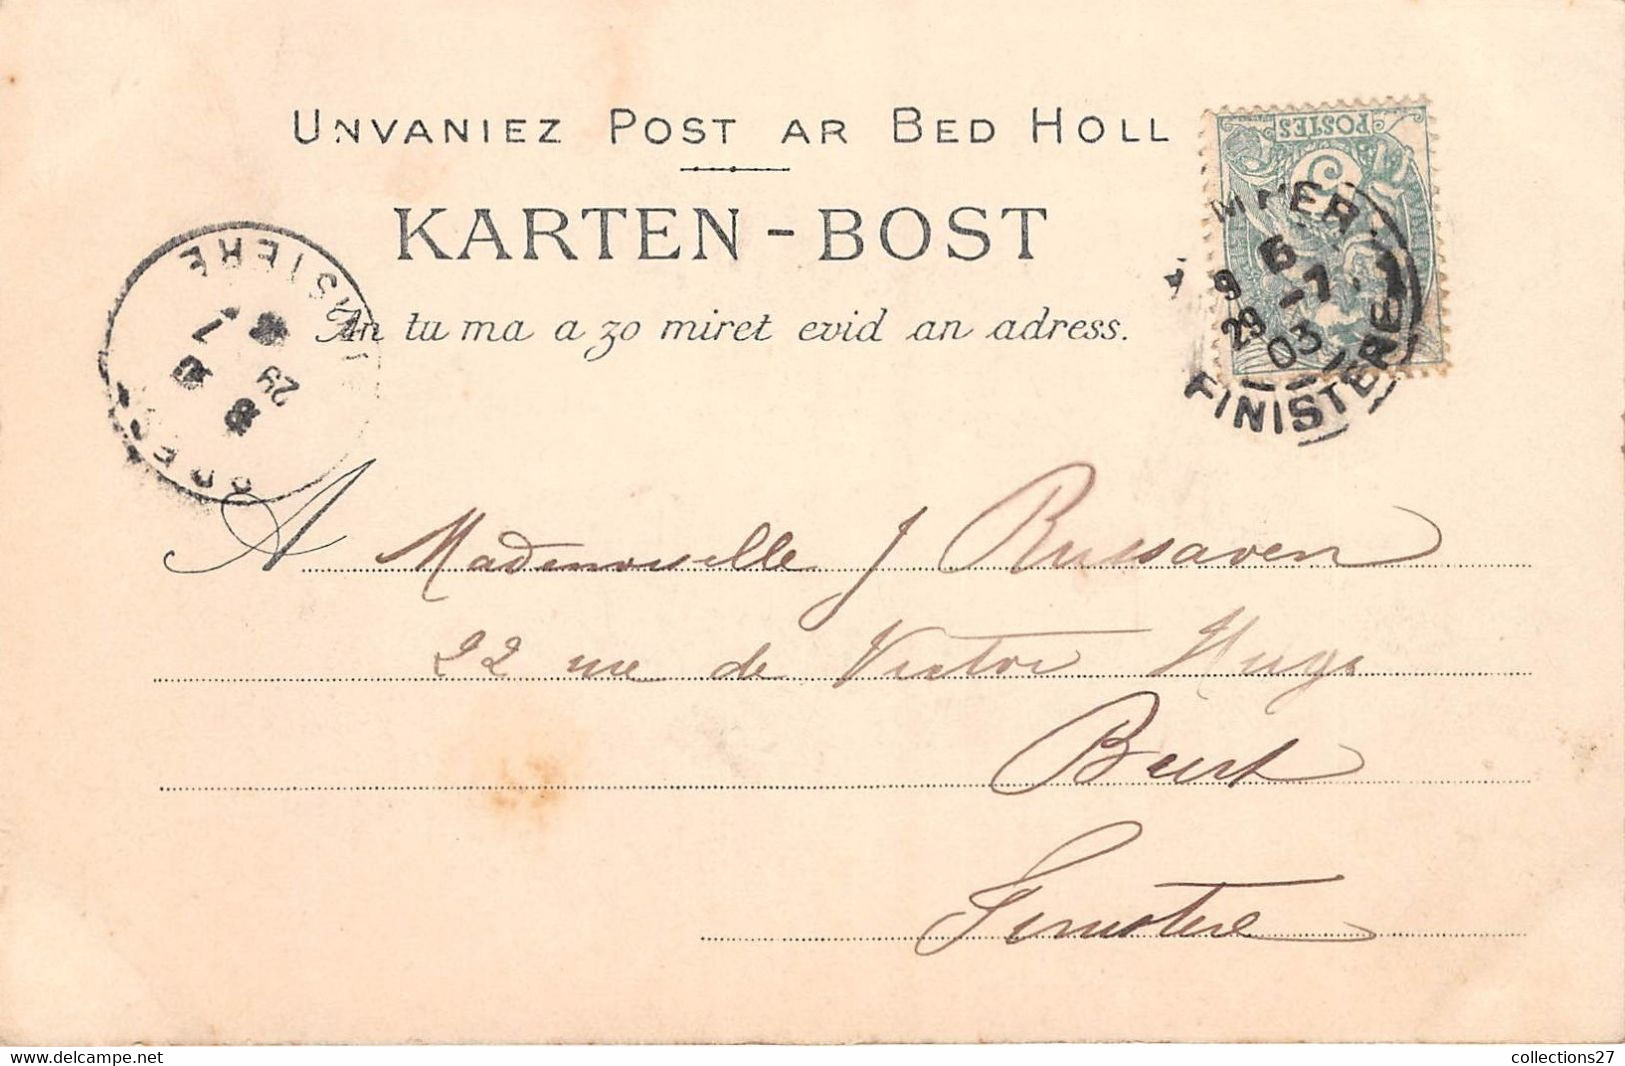 UNVANIEZ POST AR BED HOLL
KARTEN-BOST
An tu ma a zo miret evid an adress.
POSTES
5
9 5
29 -7
03
FINISTERE
FINISTERE
7
29
BREST
A Mademoiselle J Russaven
22 rue de Victor Hugo
Brest
Finistere
www.delcampe.net
collections27